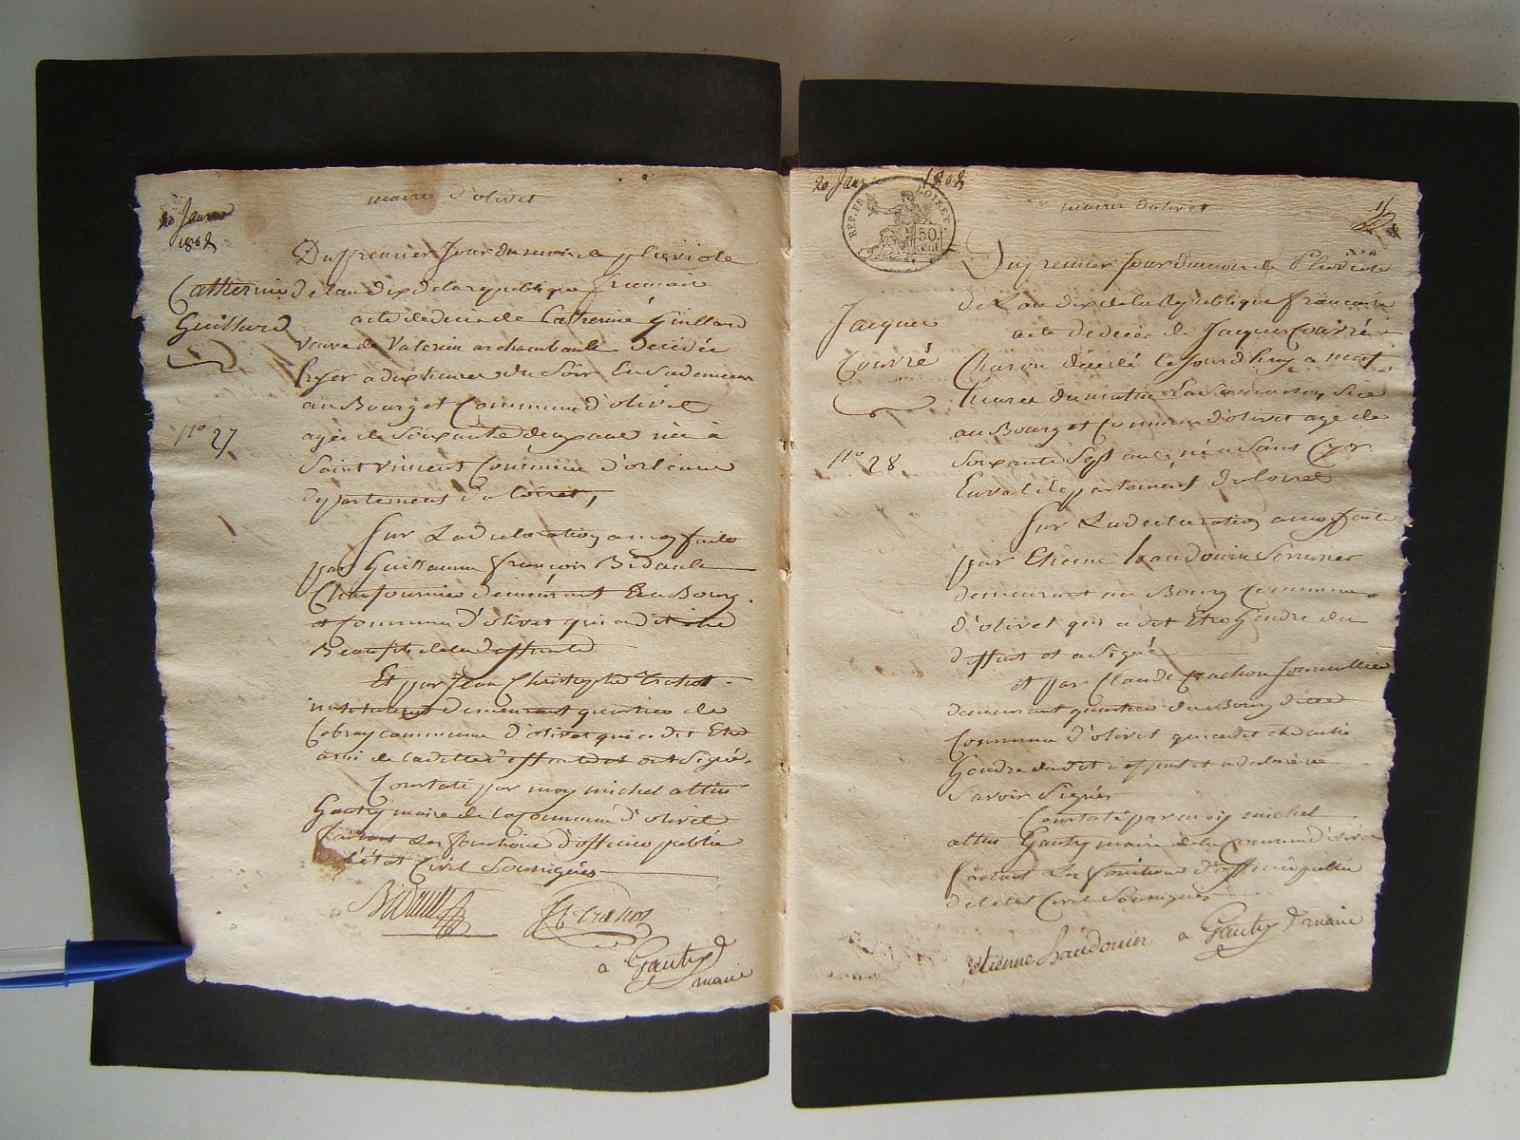 mairie d'olivet
20 Janvier
1802
Du premier Jour du mois de pluviose
Catherine
de l'an dix de la republique francaise
Guillard
acte de decès de Catherine Guillard
veuve de Valerien archambault Decedée
hyer a dix heures du Soir En Sa demeure
au Bourg et Commune d'olivet
N.o 27
agée de Soixante deux ans née à
Saint vincent Commune d'orleans
departement du Loiret,
Sur La declaration a moy faite
par Guillaume françois Bidault
Chaufournier demeurant En Bourg
et Commune d'olivet qui a dit être
Beaufils de la deffunte
Et par Jean Christophe
instituteur demeurant quartier de
Commune d'olivet qui a dit Etre
ami de la ditte deffunte et ont Signé.
Constaté par moy michel altin
Gautry maire de la Commune d'olivet
faisant Les fonctions d'officier public
de l'état Civil Soussigné
Bidault
a Gautry
maire
20 Janvier 1802
REP. FRA.
LOIRET
50
mairie d'olivet
Du premier Jour du mois de Pluviose
Jacques
de L'an dix de la Republique francaise
acte de decès de Jacques Couvré
Couvré
Charon décédé Ce Jourd'huy a neuf
heures du matin En Sa maison Sise
au Bourg et Commune d'olivet agé de
N.o 28
Soixante Sept ans né a Saint Cyr
En val departement du Loiret
Sur La declaration a moy faite
par Etienne haudouin Serrurier
demeurant au Bourg Commune
d'olivet qui a dit Etre Gendre du
deffunt et a Signé
et par Claude
demeurant quartier du Bourg ditte
Commune d'olivet qui a dit etre aussi
Gendre du dit deffunt et a declaré ne
Savoir Signer
Constaté par moy michel
altin Gautry maire de la Commune d'olivet
faisant Les fonctions d'officier public
de l'état Civil Soussigné
etienne haudouin a Gautry maire